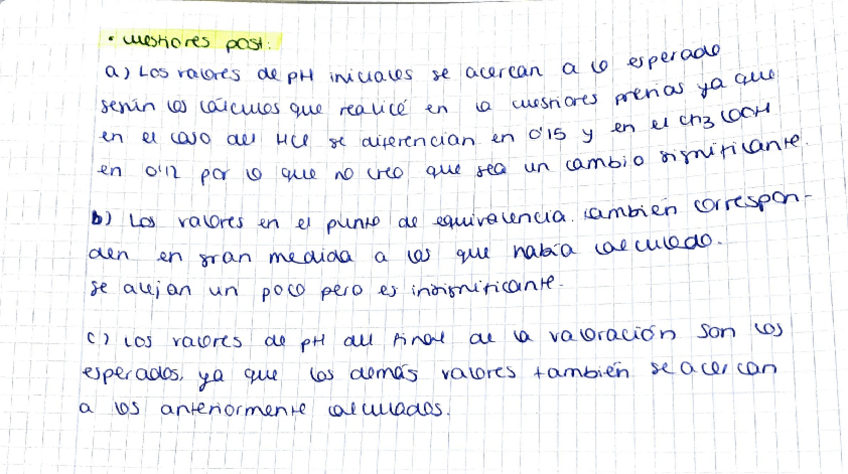 • cuestiones post:
a) Los valores de pH iniciales se acercan a lo esperado
según los cálculos que realicé en la cuestiones previas ya que
en el caso del HCl se diferencian en 0'15 y en el CH3COOH
en 0'12 por lo que no creo que sea un cambio significante.
b) Los valores en el punto de equivalencia. También correspon-
den en gran medida a los que había calculado.
se alejan un poco pero es insignificante.
c) Los valores de pH del final de la valoración son los
esperados, ya que los demás valores también se acercan
a los anteriormente calculados.